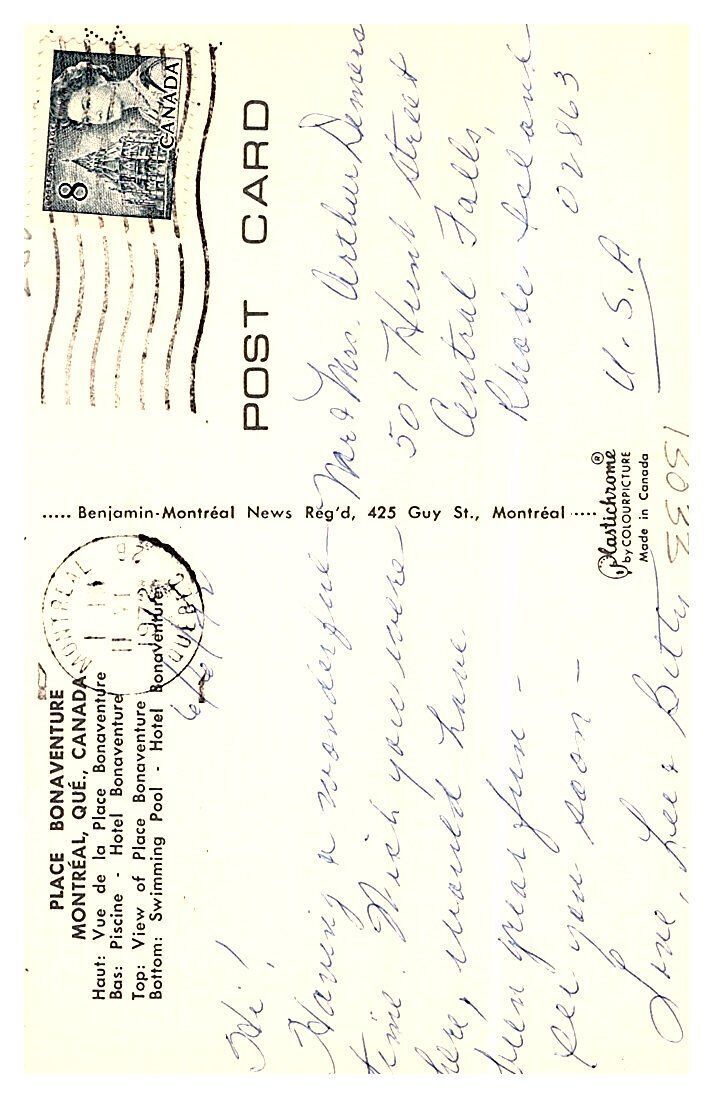 PLACE BONAVENTURE
MONTRÉAL, QUÉ., CANADA
Haut: Vue de la Place Bonaventure
Bas: Piscine - Hotel Bonaventure
Top: View of Place Bonaventure
Bottom: Swimming Pool - Hotel Bonaventure
MONTREAL
1972
QUEBEC
6/6/72
Hi!
Having a wonderful
time. Wish you were
here, would have
been great fun -
see you soon -
Love, Lee & Betty
..... Benjamin-Montréal News Reg'd, 425 Guy St., Montréal .....
Plastichrome ®
by COLOURPICTURE
Made in Canada
15033
8
CANADA
POST CARD
Mr & Mrs. Arthur Demers
501 Hunt Street
Central Falls,
Rhode Island
02863
U.S.A